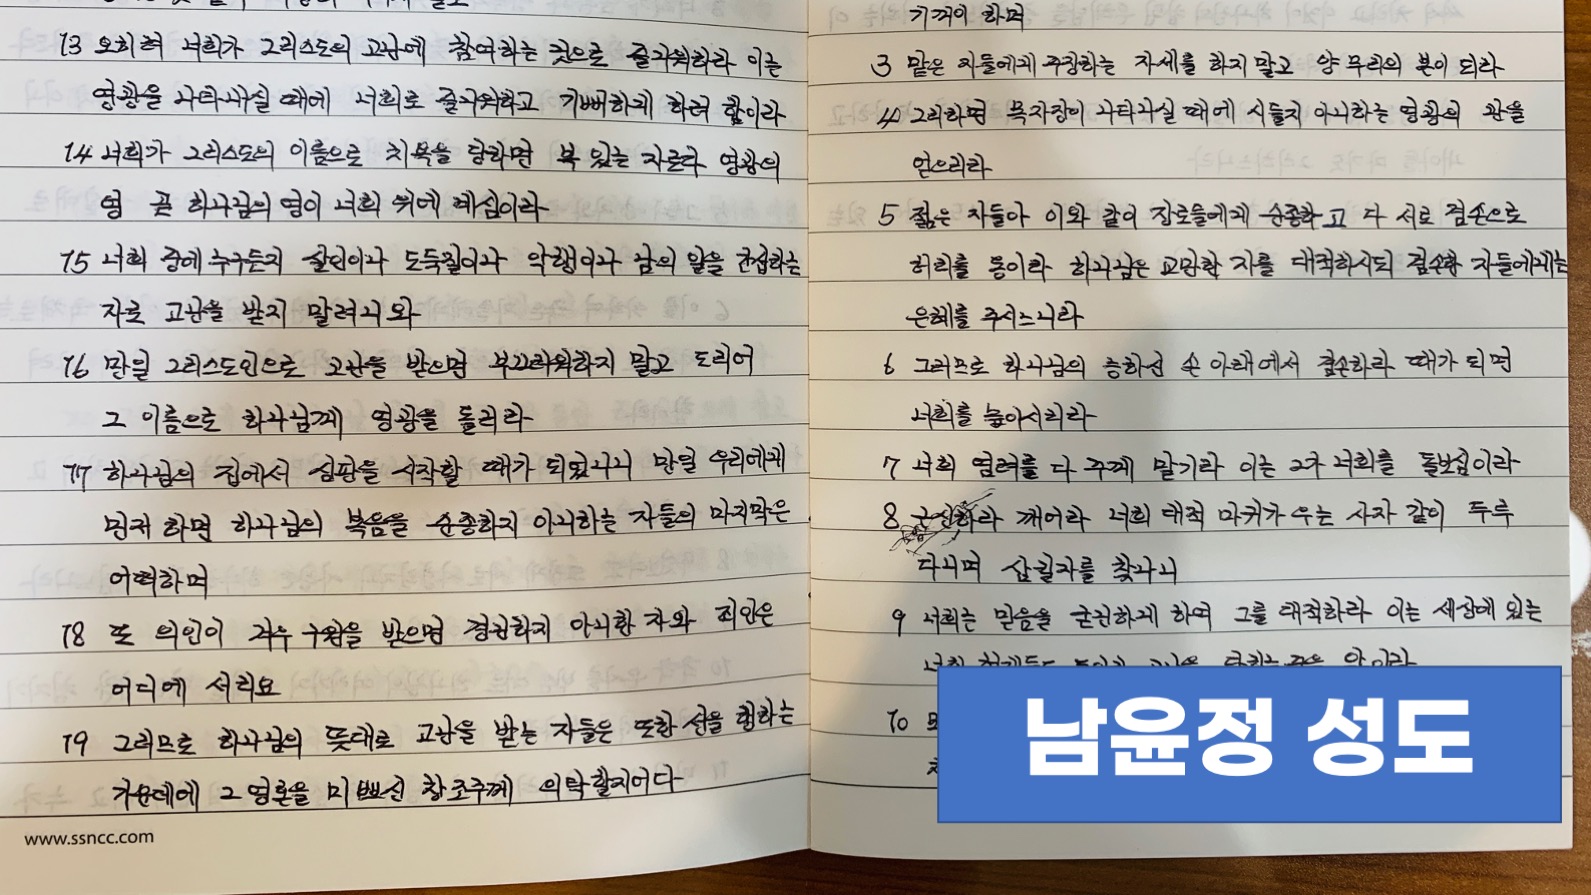 13 오히려 너희가 그리스도의 고난에 참여하는 것으로 즐거워하라 이는
영광을 나타내실 때에 너희로 즐거워하고 기뻐하게 하려 함이라
14 너희가 그리스도의 이름으로 치욕을 당하면 복 있는 자로다 영광의
영 곧 하나님의 영이 너희 위에 계심이라
15 너희 중에 누구든지 살인이나 도둑질이나 악행이나 남의 일을 간섭하는
자로 고난을 받지 말려니와
16 만일 그리스도인으로 고난을 받으면 부끄러워하지 말고 도리어
그 이름으로 하나님께 영광을 돌리라
17 하나님의 집에서 심판을 시작할 때가 되었나니 만일 우리에게
먼저 하면 하나님의 복음을 순종하지 아니하는 자들의 마지막은
어떠하며
18 또 의인이 겨우 구원을 받으면 경건하지 아니한 자와 죄인은
어디에 서리요
19 그러므로 하나님의 뜻대로 고난을 받는 자들은 또한 선을 행하는
가운데에 그 영혼을 미쁘신 창조주께 의탁할지어다
www.ssncc.com
기꺼이 하며
3 맡은 자들에게 주장하는 자세를 하지 말고 양 무리의 본이 되라
4 그리하면 목자장이 나타나실 때에 시들지 아니하는 영광의 관을
얻으리라
5 젊은 자들아 이와 같이 장로들에게 순종하고 다 서로 겸손으로
허리를 동이라 하나님은 교만한 자를 대적하시되 겸손한 자들에게는
은혜를 주시느니라
6 그러므로 하나님의 능하신 손 아래에서 겸손하라 때가 되면
너희를 높이시리라
7 너희 염려를 다 주께 맡기라 이는 그가 너희를 돌보심이라
8 근신하라 깨어라 너희 대적 마귀가 우는 사자 같이 두루
다니며 삼킬 자를 찾나니
9 너희는 믿음을 굳건하게 하여 그를 대적하라 이는 세상에 있는
10
남윤정 성도